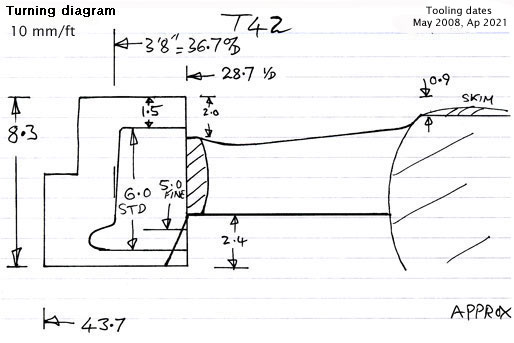 Turning diagram
10 mm/ft
T42
Tooling dates
May 2008, Ap 2021
3'8" = 36.7 O/D
28.7 I/D
0.9
SKIM
8.3
1.5
2.0
6.0
STD
5.0
FINE
2.4
43.7
APPROX